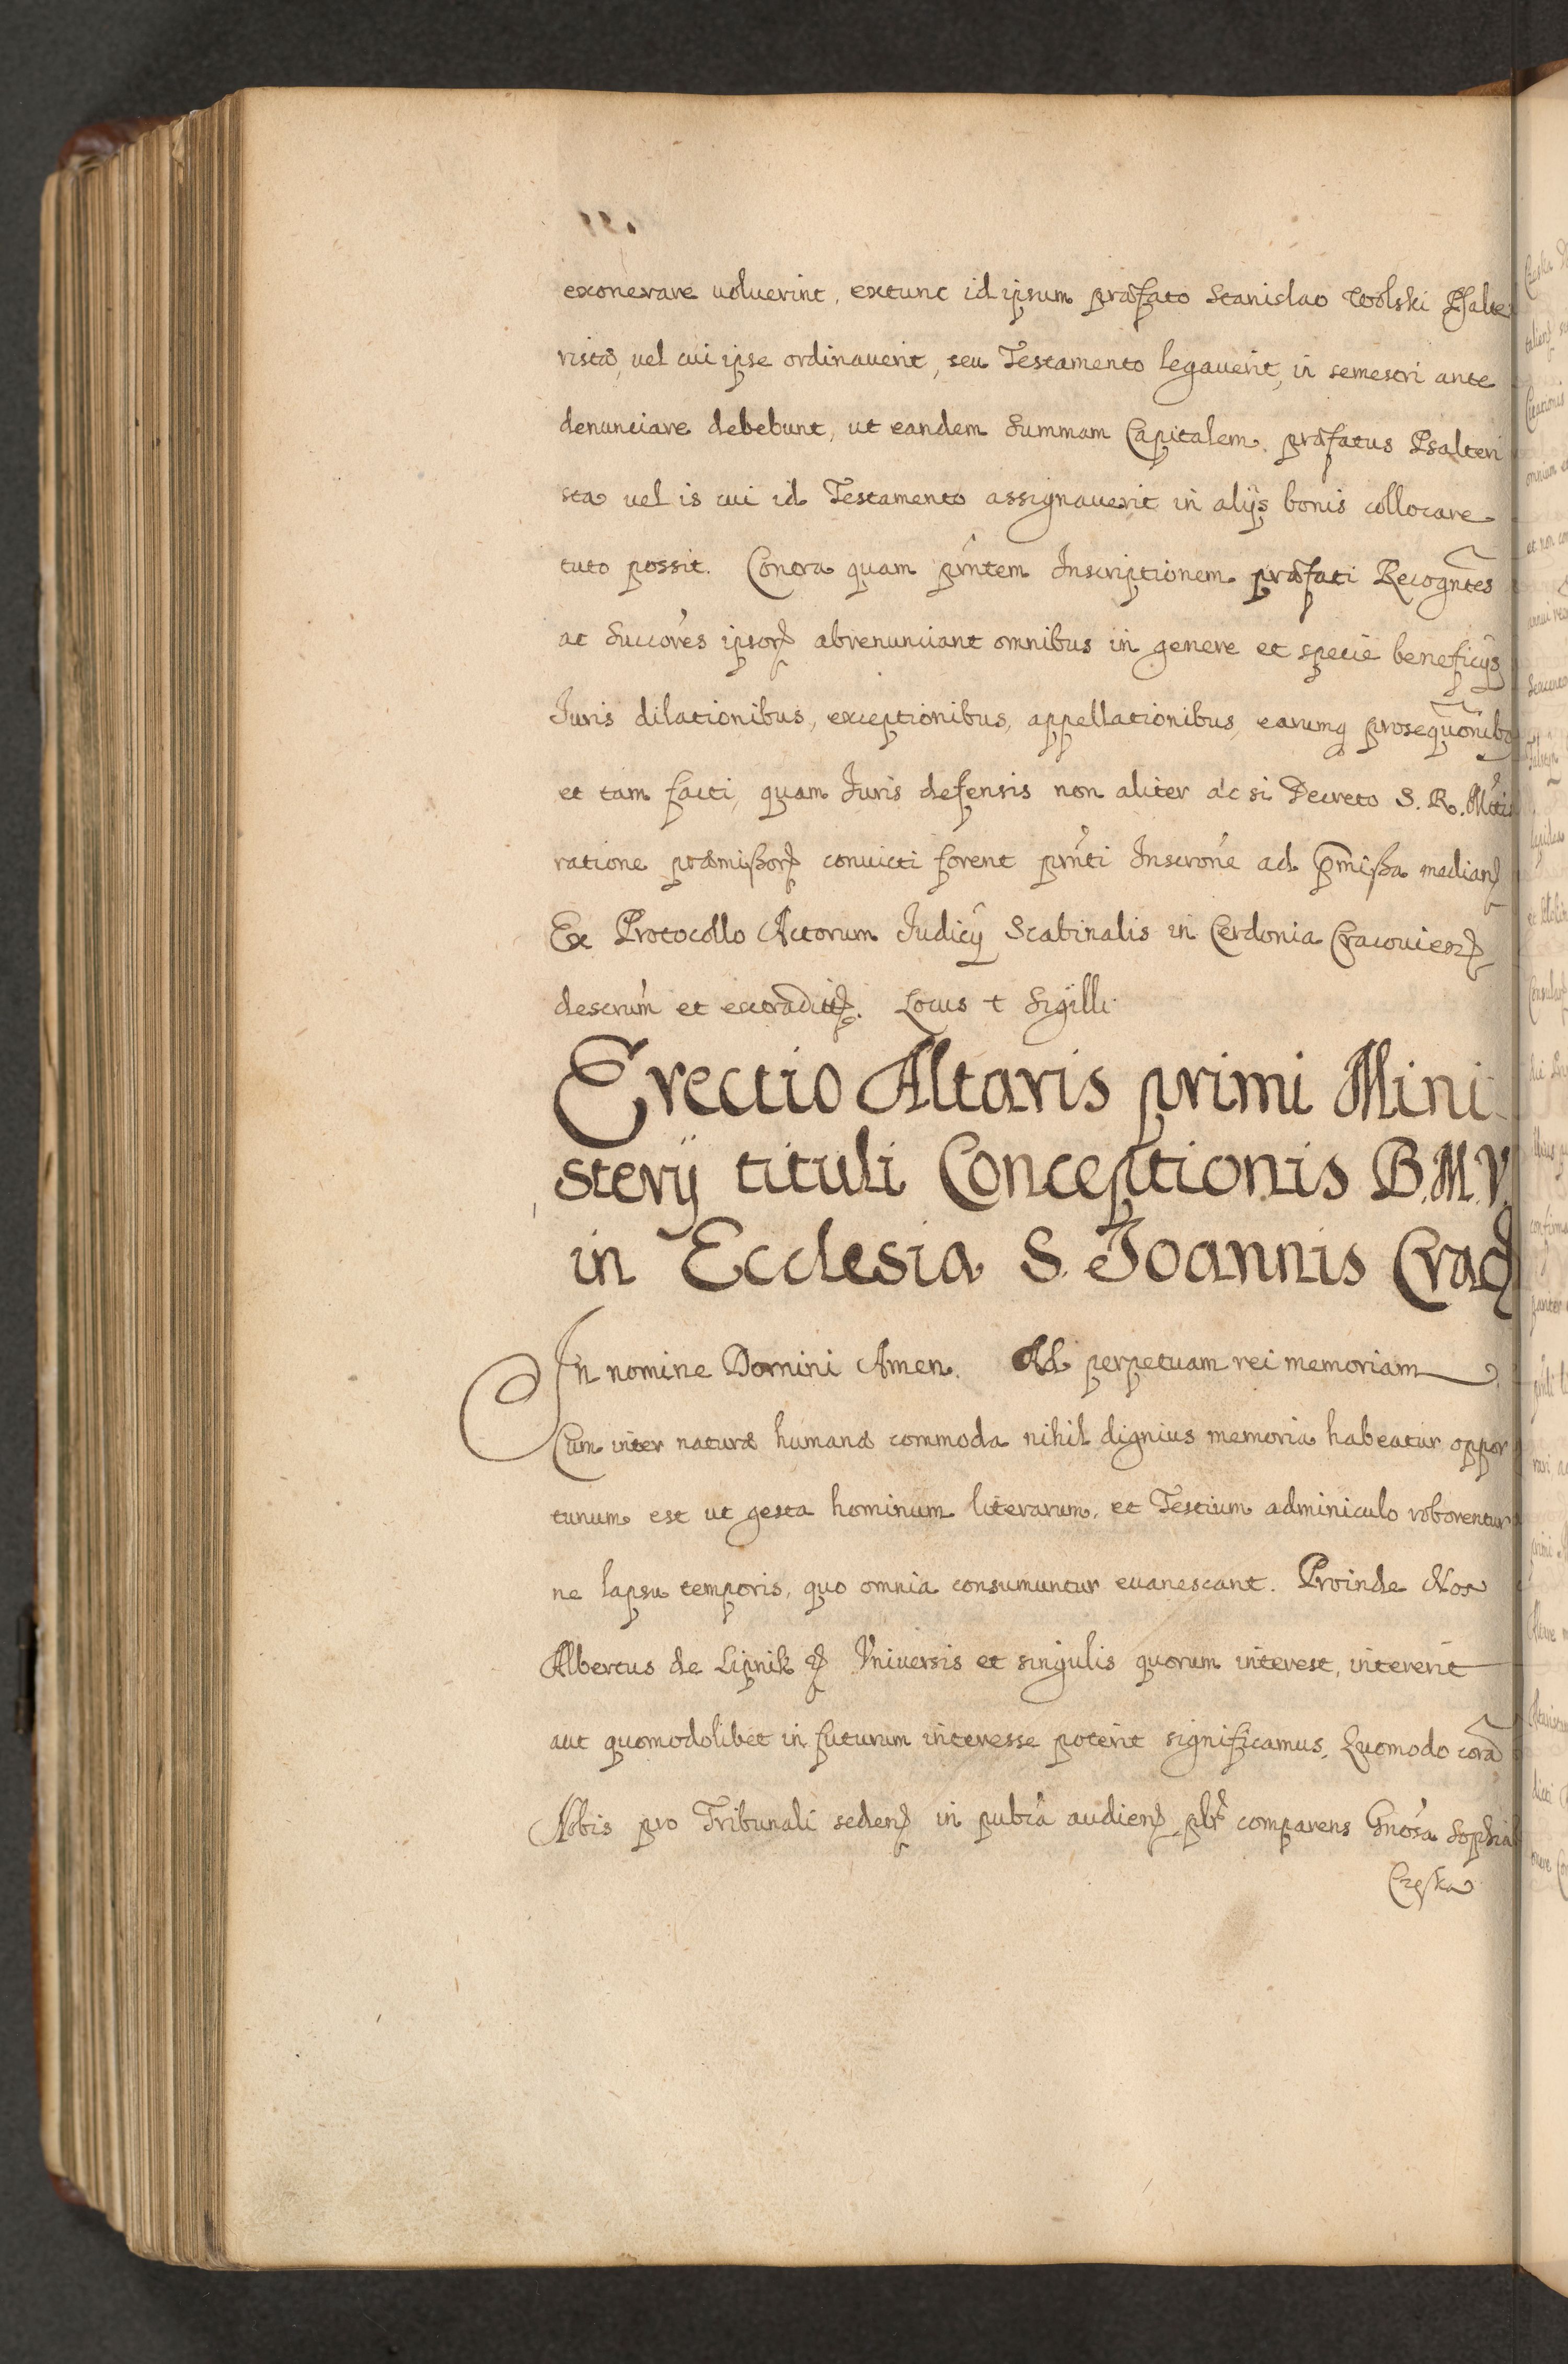 12.
exonerare uoluerint, extunc id ipsum præfato Stanislao Wolski Psalte
ristæ, uel cui ipse ordinauerit, seu Testamento legauerit, in semestri ante
denunciare debebunt, ut eandem Summam Capitalem præfatus Psalteri
sta uel is cui id Testamento assignauerit in alijs bonis collocare
tuto possit. Contra quam pñtem Inscriptionem præfati Recogñtes
ac Succores ipsorꝫ abrenunciant omnibus in genere et specie beneficijs
Juris dilationibus, exceptionibus, appellationibus, earumq prosequõnibꝫ
et tam facti, quam Juris defensis non aliter ac si Decreto S. R. Mtis
ratione præmißorꝫ conuicti forent pñti Inscrone ad p̄mißa medianꝫ
Ex Protocollo Actorum Judicij Scabinalis in Cerdonia Cracouienꝫ
descrum et extraditꝫ. Locus + Sigilli
Erectio Altaris primi Mini
sterij tituli Conceptionis B.M.V.
in Ecclesia S. Joannis Cracꝫ
In nomine Domini Amen. Ad perpetuam rei memoriam
Cum inter naturæ humanæ commoda nihil dignius memoria habeatur oppor
tunum est ut gesta hominum literarum, et Testium adminiculo roborentur
ne lapsu temporis, quo omnia consumuntur euanescant. Proinde Nos
Albertus de Lipnik ꝫ Vniuersis et singulis quorum interest, intererit
aut quomodolibet in futurum interesse poterit significamus, Quomodo corã
Nobis pro Tribunali sedenꝫ in publca audienꝫ plr comparens Gnosa Sophia
Czeska